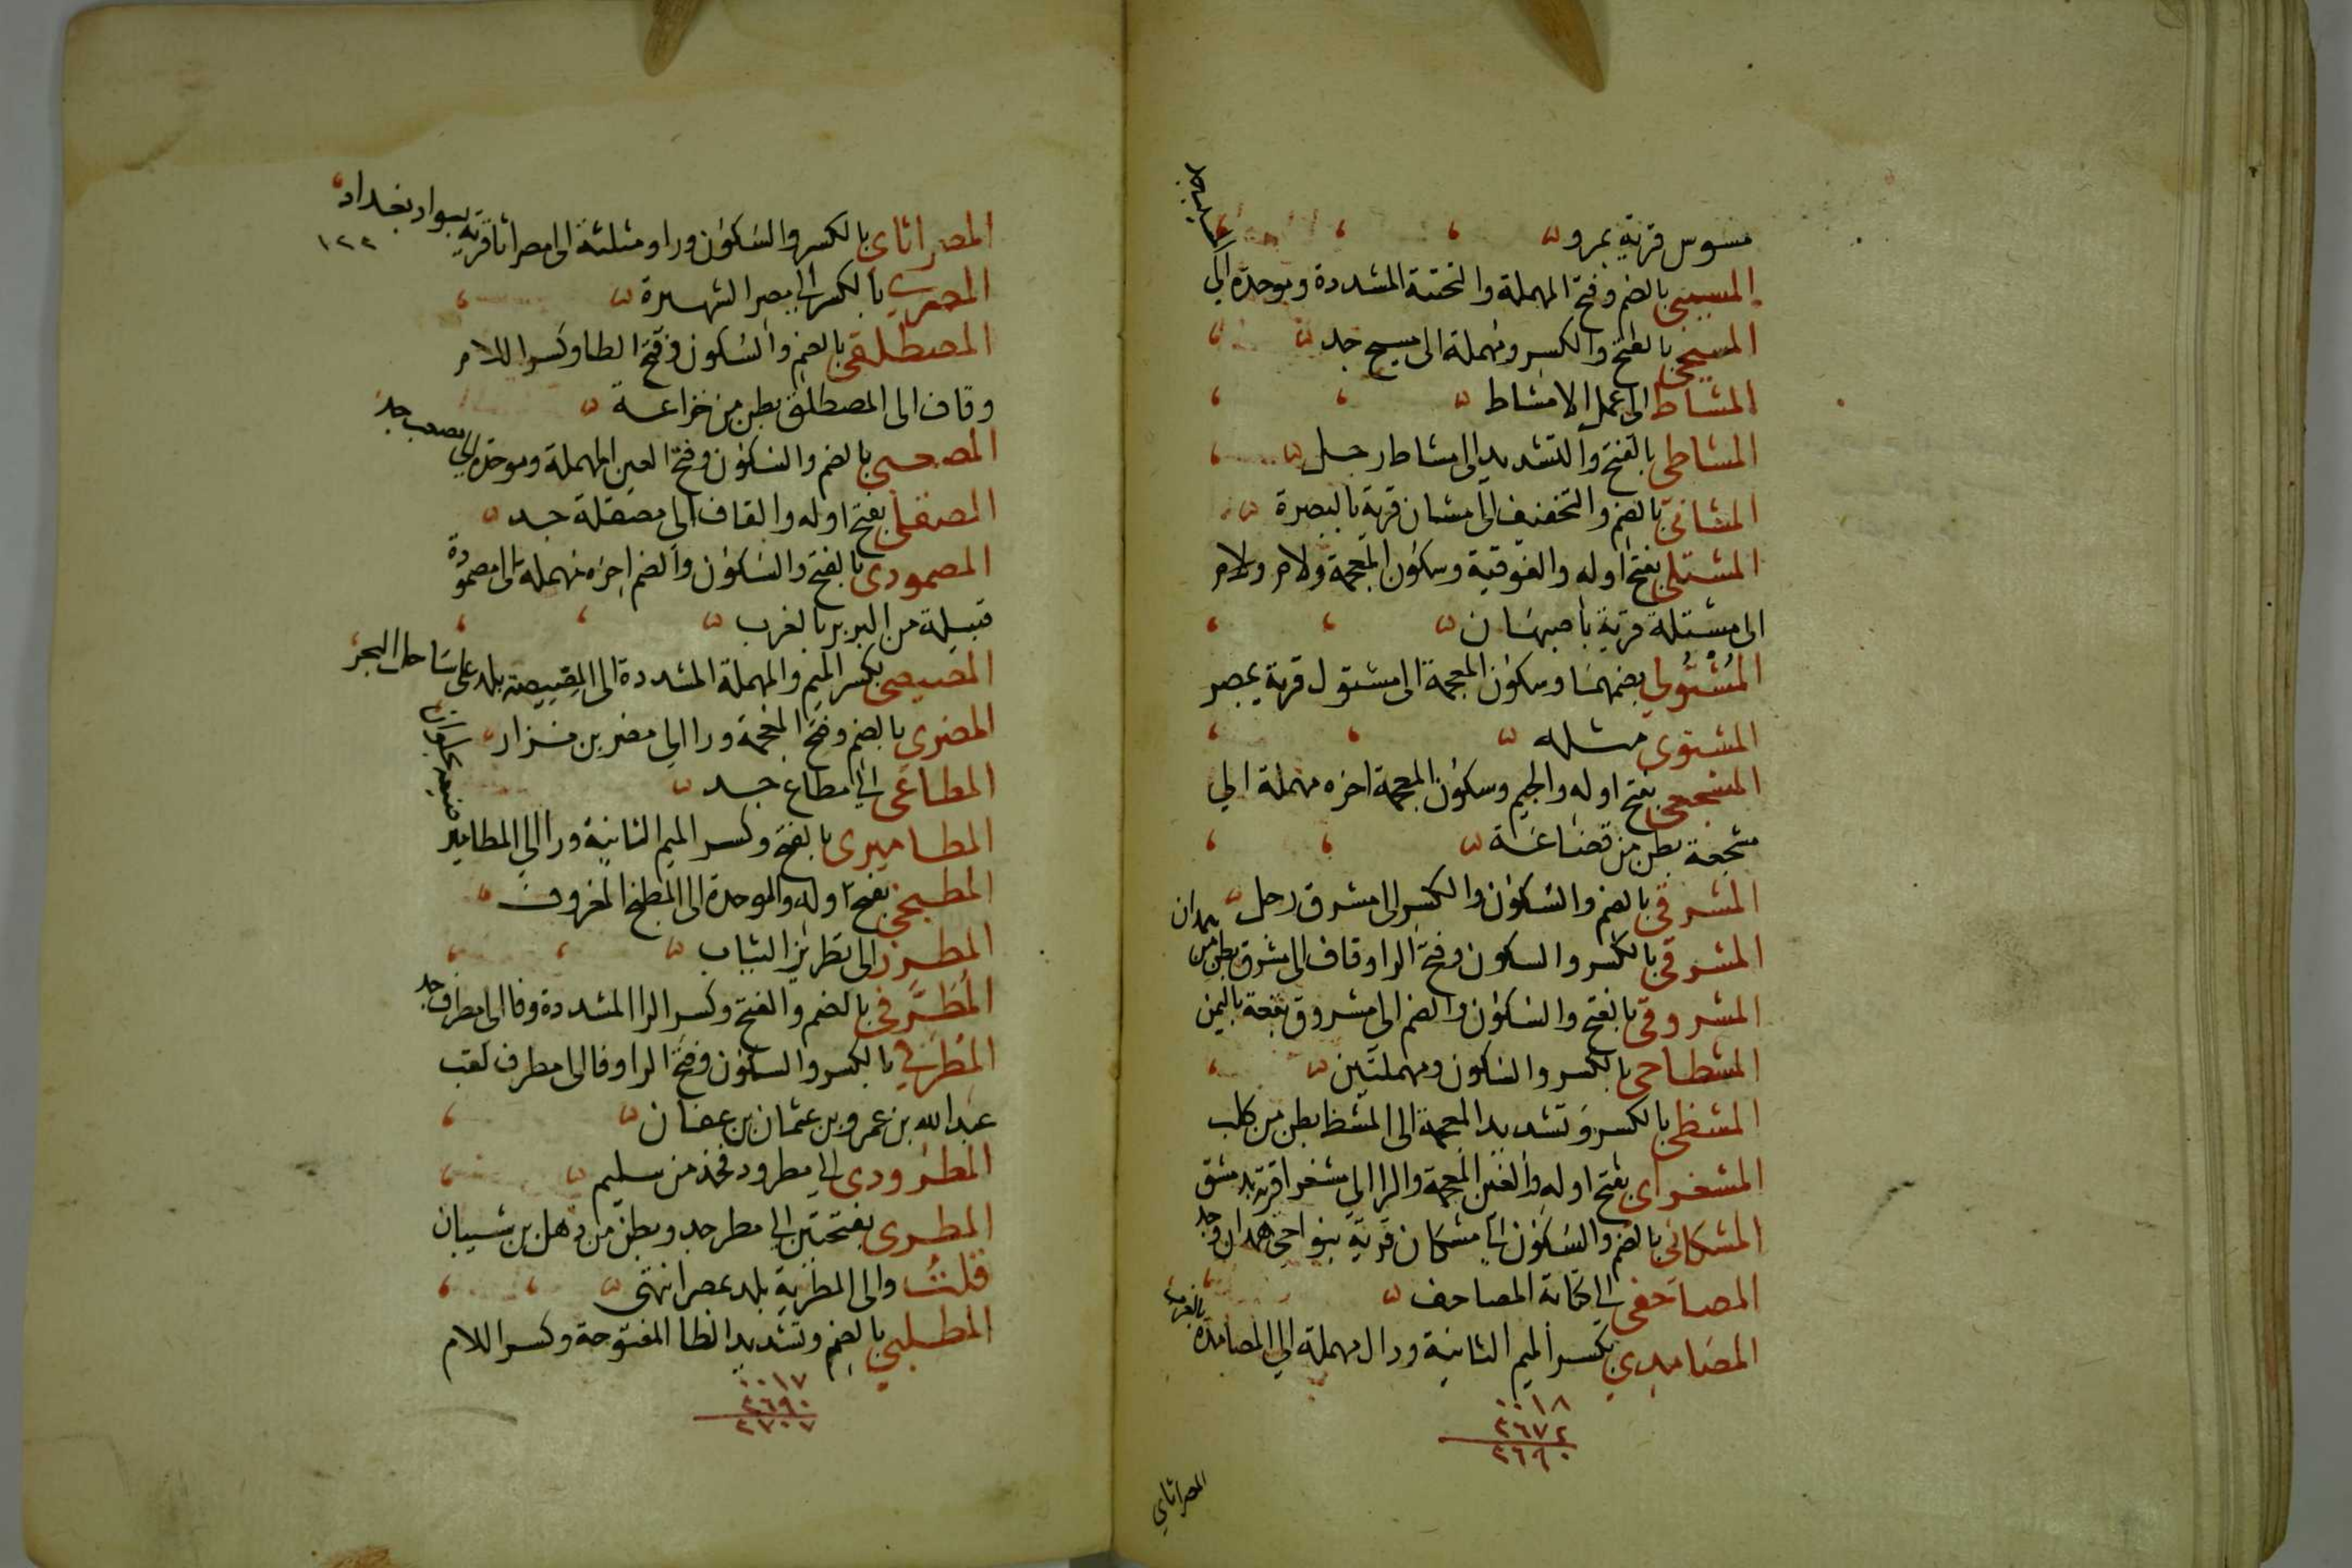 مسوس قرية بمرو
المسيبي بالضم وفتح المهملة والتحتية المشددة وموحدة الى
المسيب جد
المسيحي بالفتح والكسر ومهملة الى مسيح جد
المشاط الى عمل الامشاط
المشاطي بالفتح والتشديد الى مشاط رجل
المشاني بالضم والتخفيف الى مشان قرية بالبصرة
المشتلي بفتح اوله والفوقية وسكون المعجمة ولام ولام
الى مشتلة قرية باصبهان
المُشْتُولي بضمهما وسكون المعجمة الى مشتول قرية بمصر
المشتوي مثله
المشجعي بفتح اوله والجيم وسكون المعجمة اخره مهملة الي
مشجعة بطن من قضاعة
المشرقي بالضم والسكون والكسر الى مشرق رجل
المشرقي بالكسر والسكون وفتح الرا وقاف الى مشرق بطن من
همدان
المشروقي بالفتح والسكون والضم الى مشروق بقعة باليمن
المشطاحي بالكسر والسكون ومهملتين
المشظي بالكسر وتشديد المعجمة الى المشظ بطن من كلب
المشغراي بفتح اوله والغين المعجمة والرا الى مشغرا قرية بدمشق
المشكاني بالضم والسكون الى مشكان قرية بنواحي همدان وجد
المصاحفي الى كتابة المصاحف
المصامدي بكسر الميم الثانية ودال مهملة الي المصامدة
بالغرب
٠٠١٨
٢٦٧٢
٢٦٩٠
المصراثاي
المصراثاي بالكسر والسكون ورا ومثلثة الى مصراثا قرية بسواد بغداد
١٢٢
المصري بالكسر الى مصر الشهيرة
المصطلقي بالضم والسكون وفتح الطا وكسر اللام
وقاف الى المصطلق بطن من خزاعة
المصعبي بالضم والسكون وفتح العين المهملة وموحدة الي مصعب جد
المصقلي بفتح اوله والقاف الى مصقلة جد
المصمودي بالفتح والسكون والضم اخره مهملة الى مصمودة
قبيلة من البربر بالغرب
المصيصي بكسر الميم والمهملة المشددة الى المصيصة بلد على ساحل البحر
المضري بالضم وفتح المعجمة ورا الي مضر بن نزار
المطاعي الي مطاع جد
المطاميري بالفتح وكسر الميم الثانية ورا الى المطامير
المطبخي بفتح اوله والموحدة الى المطبخ المعروف
المطرز الى تطريز الثياب
المُطَرِّفي بالضم والفتح وكسر الرا المشددة وفا الى مطرف جد
المطرفي بالكسر والسكون وفتح الرا وفا الى مطرف لقب
عبد الله بن عمرو بن عثمان بن عفان
المطرودي الي مطرود فخذ من سليم
المطري بفتحتين الي مطر جد وبطن من ذهل بن شيبان
قلت والى المطرية بلد بمصر انتهى
المطلبي بالضم وتشديد الطا المفتوحة وكسر اللام
٠٠١٧
٢٦٩٠
٢٧٠٧